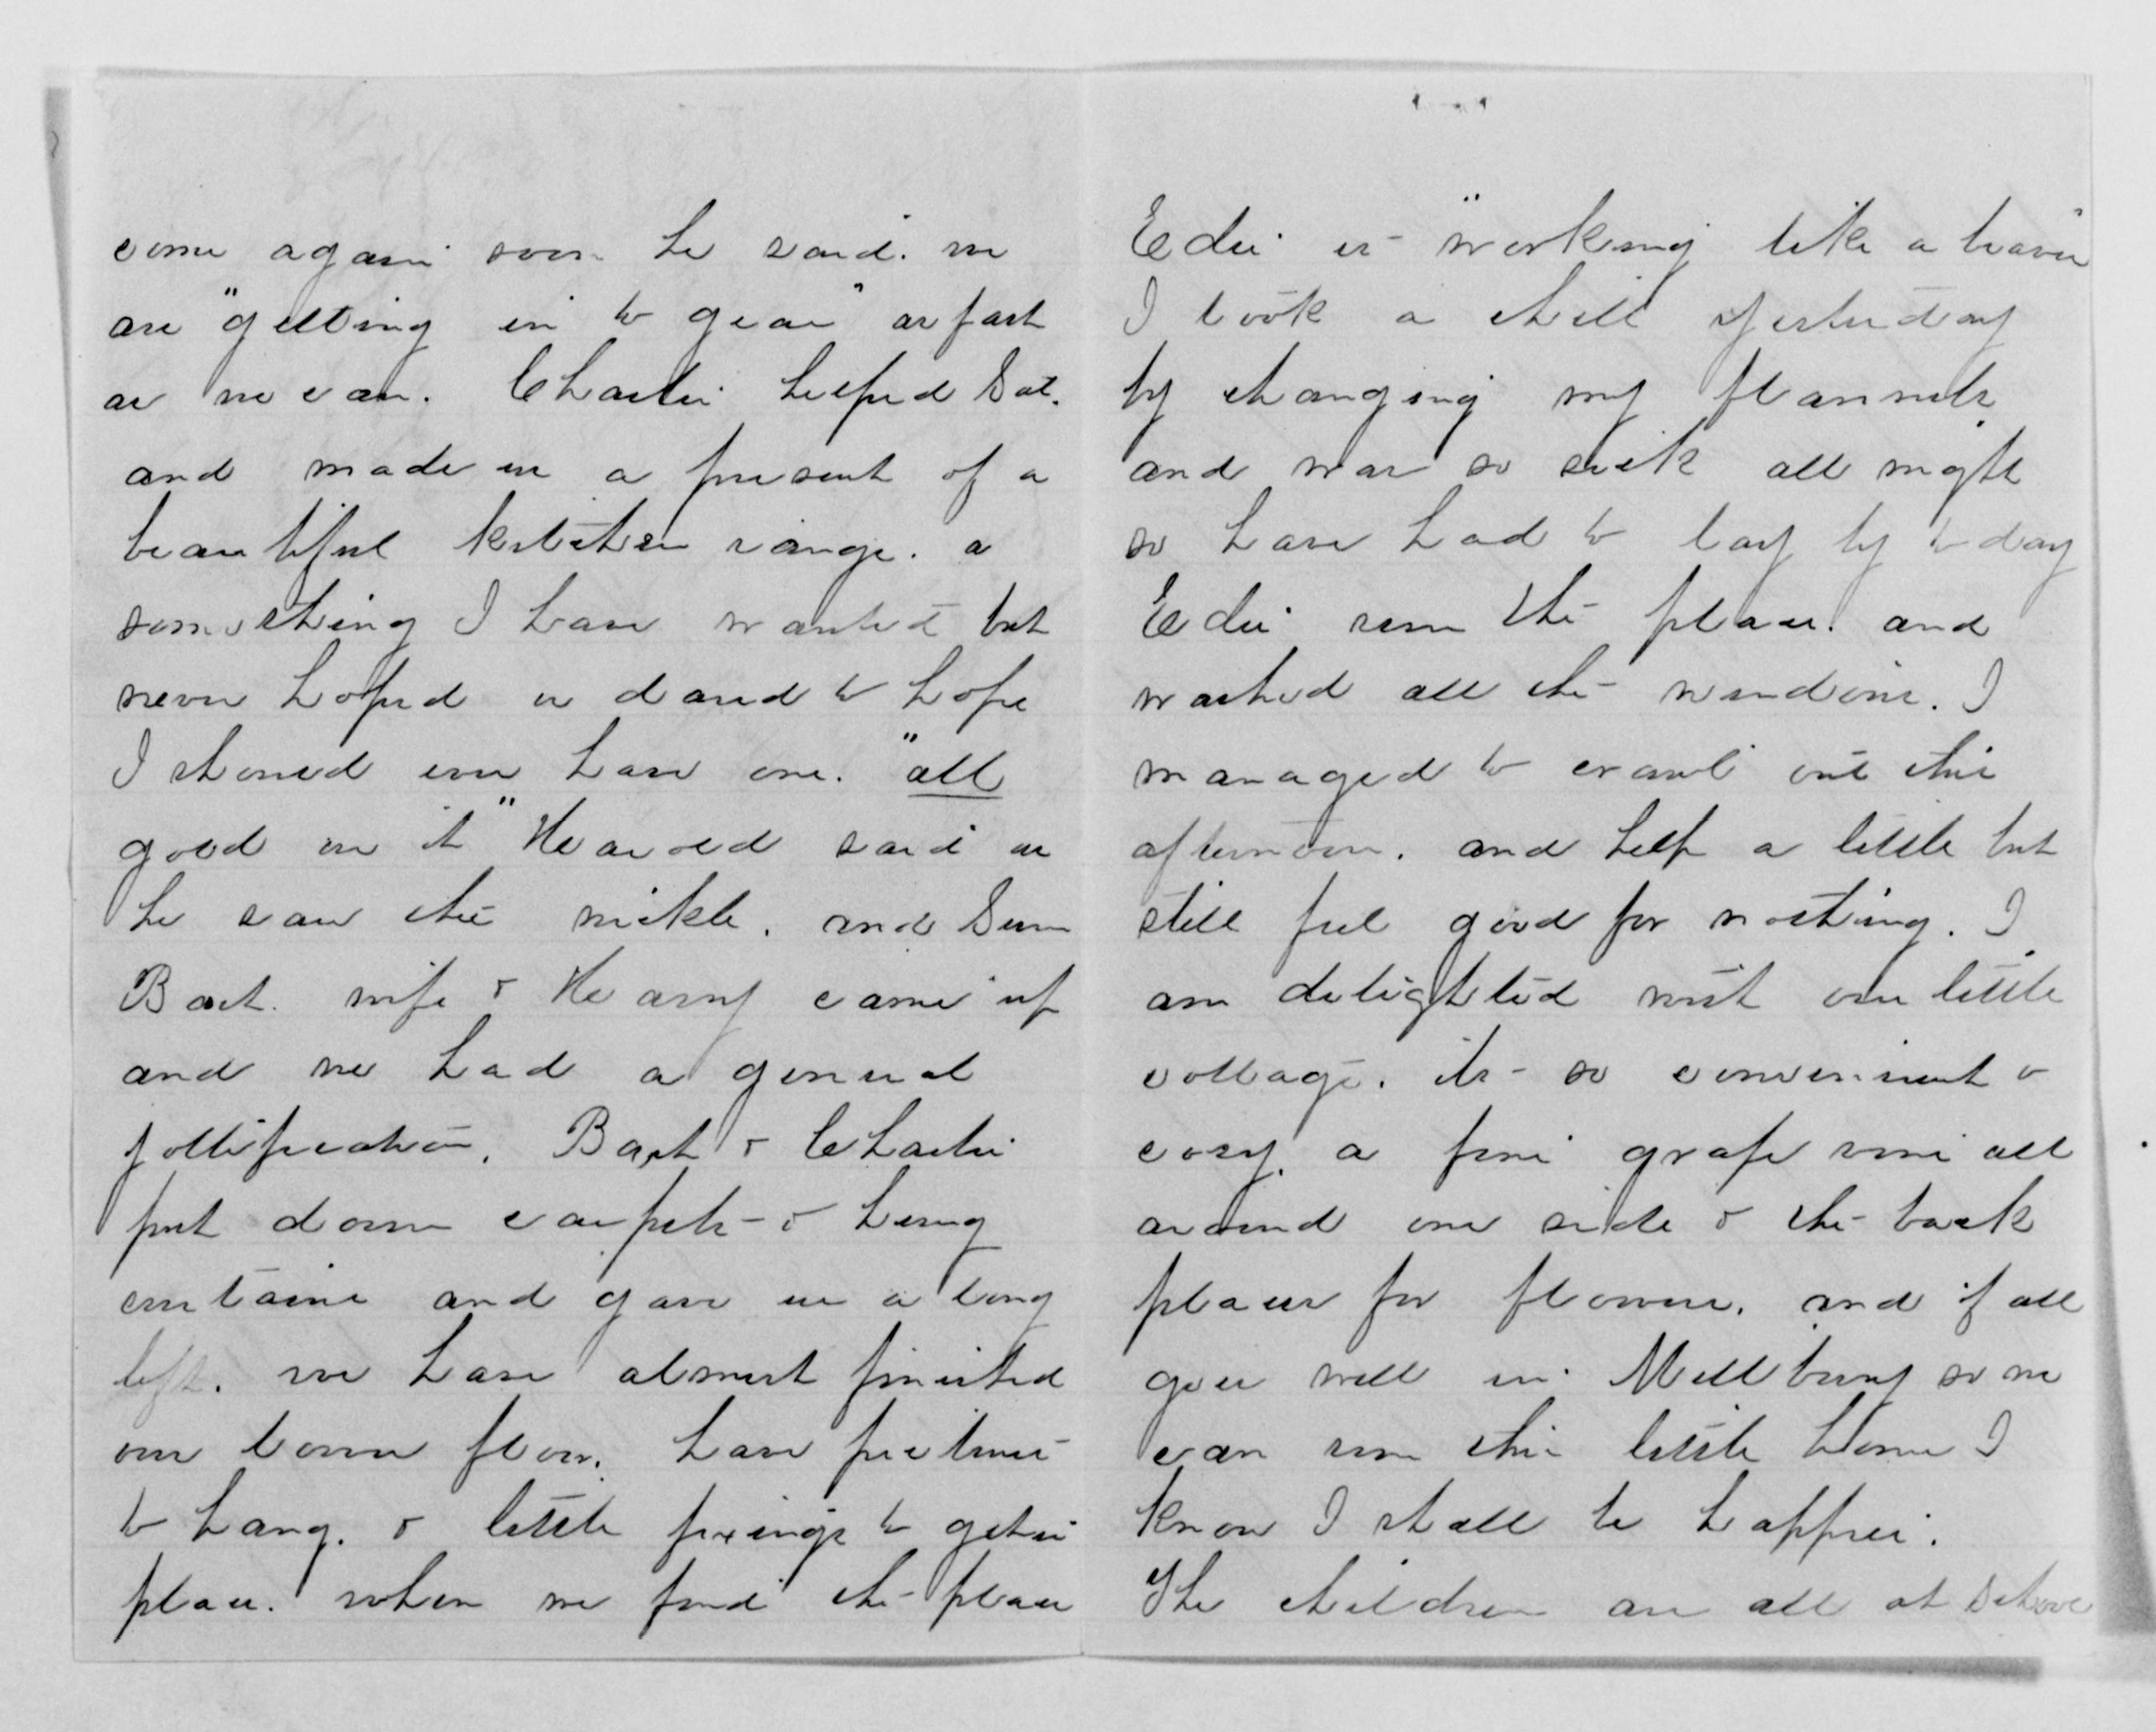 come again soon he said. we
are "getting in to gear" as fast
as we can. Charlie helped Sat.
and made us a present of a
beautiful kitchen range. a
something I have wanted but
never hoped or dared to hope
I should ever have one. "all
good on it" Harold said as
he saw the nickle. and Sun
Bart. wife & Harry came up
and we had a general
jollification. Bart & Charlie
put down carpets & hung
curtains and gave us a long
lift. we have almost finished
our lower floor. have pictures
to hang. & little fixings to get in
place. when we find the place
Edie is "working like a beaver"
I took a chill yesterday
by changing my flannels
and was so sick all night
so have had to lay by to day
Edie run the place. and
washed all the windows. I
managed to crawl out this
afternoon. and help a little but
still feel good for nothing. I
am delighted with our little
cottage. its so convenient &
cosy. a fine grape vine all
around one side & the back
places for flowers. and if all
goes well in Millbury so we
can run this little home I
know I shall be happier.
The children are all at School